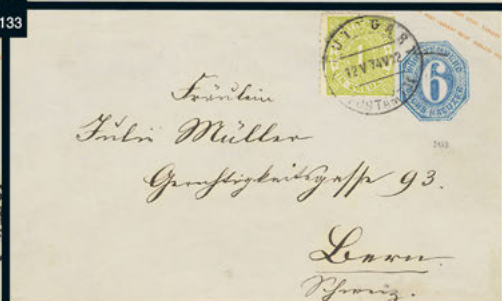 133
STUTTGART
12 V 74 V 12
POSTAMT
1
6
SECHS KREUZER
Fräulein
Julie Müller
Gerechtigkeitsgasse 93.
Bern.
Schweiz.